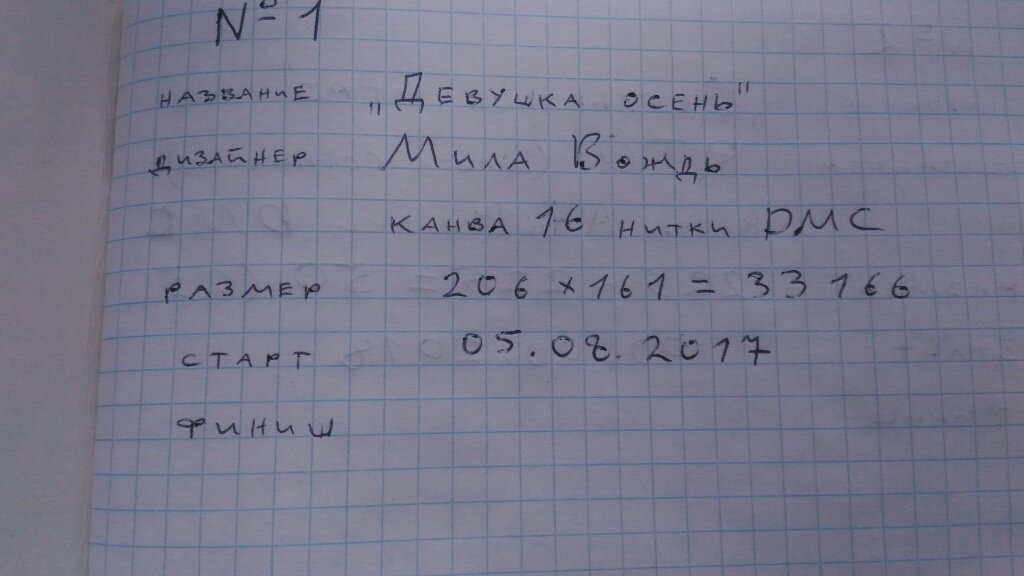 № 1
НАЗВАНИЕ „ДЕВУШКА ОСЕНЬ"
ДИЗАЙНЕР МИЛА ВОЖДЬ
КАНВА 16 НИТКИ DMC
РАЗМЕР 206 × 161 = 33 166
СТАРТ 05.08.2017
ФИНИШ